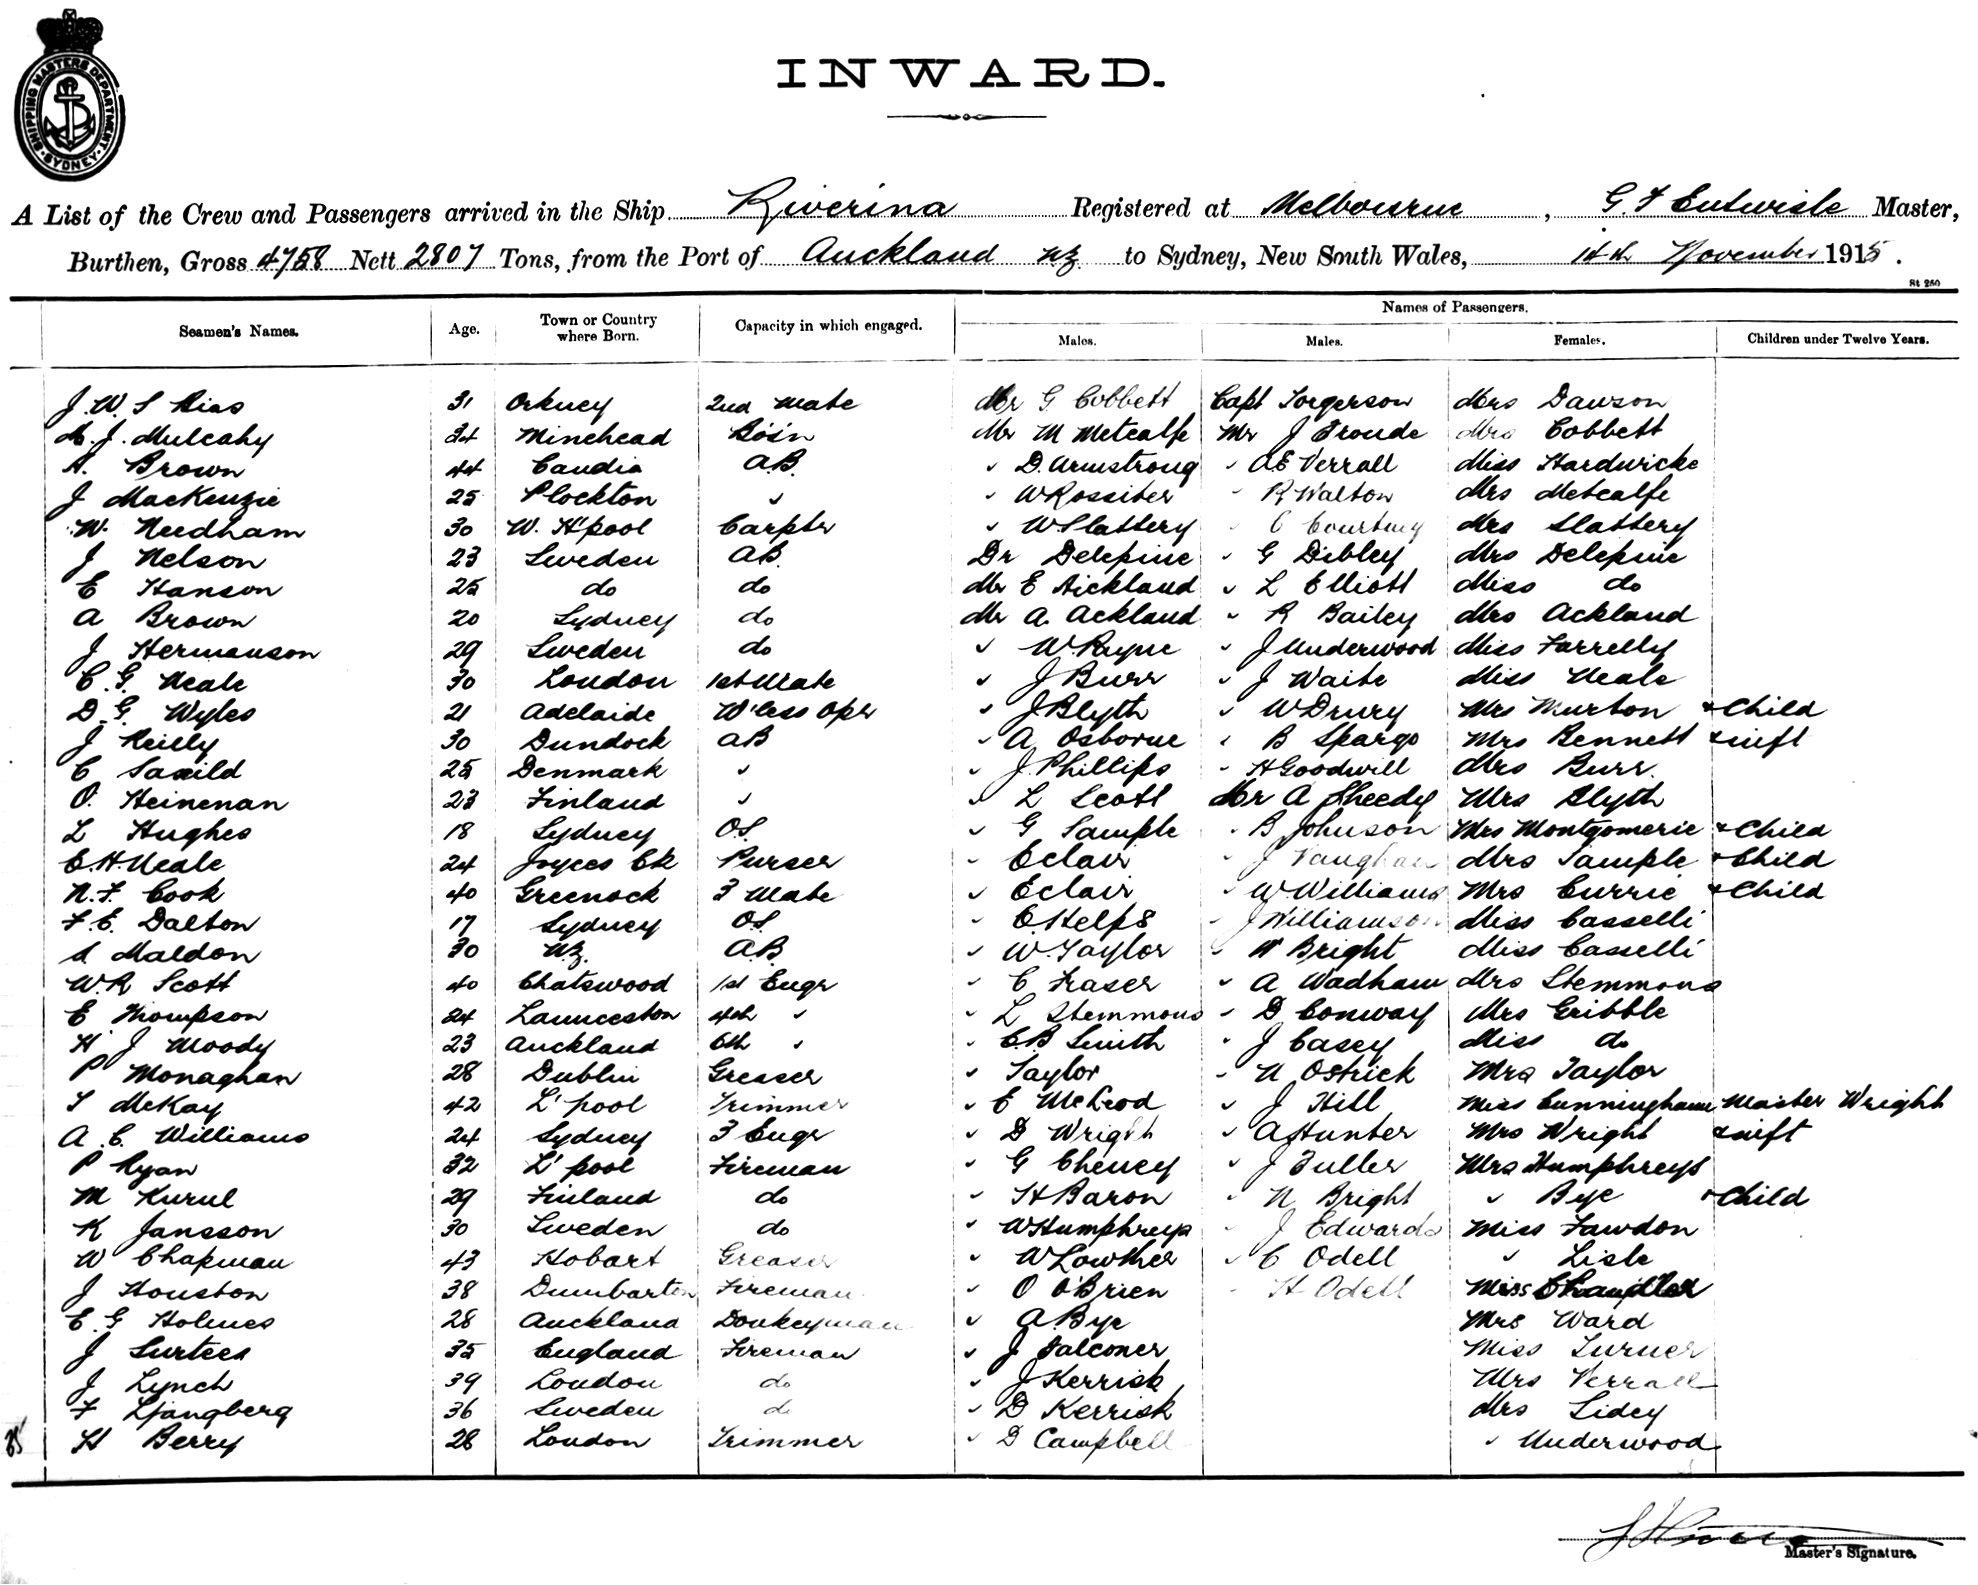 SHIPPING MASTERS DEPARTMENT
SYDNEY
INWARD.
A List of the Crew and Passengers arrived in the Ship Riverina Registered at Melbourne, G. F Entwisle Master,
Burthen, Gross 4758 Nett 2807 Tons, from the Port of Auckland NZ to Sydney, New South Wales, 14th November 1915.
St 250
Names of Passengers.
Seamen's Names. Age. Town or Country where Born. Capacity in which engaged. Males. Males. Females. Children under Twelve Years.
J. W. S Rias 31 Orkney 2nd Mate Mr G Cobbett Capt Torgerson Mrs Dawson
M. J. Mulcahy 34 Minehead Bos'n Mr M Metcalfe Mr J Froude Mrs Cobbett
A. Brown 44 Candia A.B. " D. Armstrong " A E Verrall Miss Hardwicke
J MacKenzie 25 Plockton " " W Rossiter " R Walton Mrs Metcalfe
W. Needham 30 W. H'pool Carptr " W Slattery " C Courtney Mrs Slattery
J Nelson 23 Sweden AB. Dr Delepine " G Dibley Mrs Delepine
E Hanson 25 do do Mr E Aickland " L Elliott Miss do
A Brown 20 Sydney do Mr A. Ackland " R Bailey Mrs Ackland
J Hermanson 29 Sweden do " W. Payne " J Underwood Miss Farrelly
C. G. Neale 30 London 1st Mate " J Burr " J Waite Miss Neale
D. G. Wyles 21 Adelaide W'less Oper " J Blyth " W Drury Mrs Murton & Child
J Reilly 30 Dundock AB " A Osborne " B Spargo Mrs Bennett & inft
C Saxild 25 Denmark " " J Phillips " H Goodwill Mrs Burr.
O. Heinenan 23 Finland " " L Scott Mr A Sheedy Mrs Blyth
L Hughes 18 Sydney O.S. " G Sample " B Johnson Mrs Montgomerie & Child
C. H. Neale 24 Joyces Ck Purser " Eclair " J Vaughan Mrs Sample & Child
N. F. Cook 40 Greenock 3 Mate " Eclair " W. Williams Mrs Currie & Child
F. E. Dalton 17 Sydney O.S. " E Helps " J Williamson Miss Casselli
S Maldon 30 N.Z. A.B. " W. Taylor " W Bright Miss Casselli
W. R Scott 40 Chatswood 1st Engr " C Fraser " A Wadham Mrs Stemmons
E Thompson 24 Launceston 4th " " L Stemmons " D Conway Mrs Gribble
H J Moody 23 Auckland 6th " " C. B Smith " J Casey Miss do
P Monaghan 28 Dublin Greaser " Taylor " N Ostrick Mrs Taylor
T McKay 42 L'pool Trimmer " E McLeod " J Hill Miss Cunningham Master Wright
A. C. Williams 24 Sydney 3 Engr " D Wright " A Hunter Mrs Wright & inft
P Ryan 32 L'pool Fireman " G Cheney " J Fuller Mrs Humphreys
M Kurul 29 Finland do " H Baron " N Bright " Bye & Child
K Jansson 30 Sweden do " W Humphreys " J Edwards Miss Fawdon
W Chapman 43 Hobart Greaser " W Lowther " C Odell " Lisle
J Houston 38 Dumbarton Fireman " O O'Brien " H Odell Miss Chandler
E. G Holmes 28 Auckland Donkeyman " A. Bye Mrs Ward
J Surtees 35 England Fireman " J Falconer Miss Turner
J Lynch 39 London do " J Kerrisk Mrs Verrall
F Ljangberg 36 Sweden do " D Kerrisk Mrs Lidey
35 H Berry 28 London Trimmer " D Campbell " Underwood
Master's Signature.